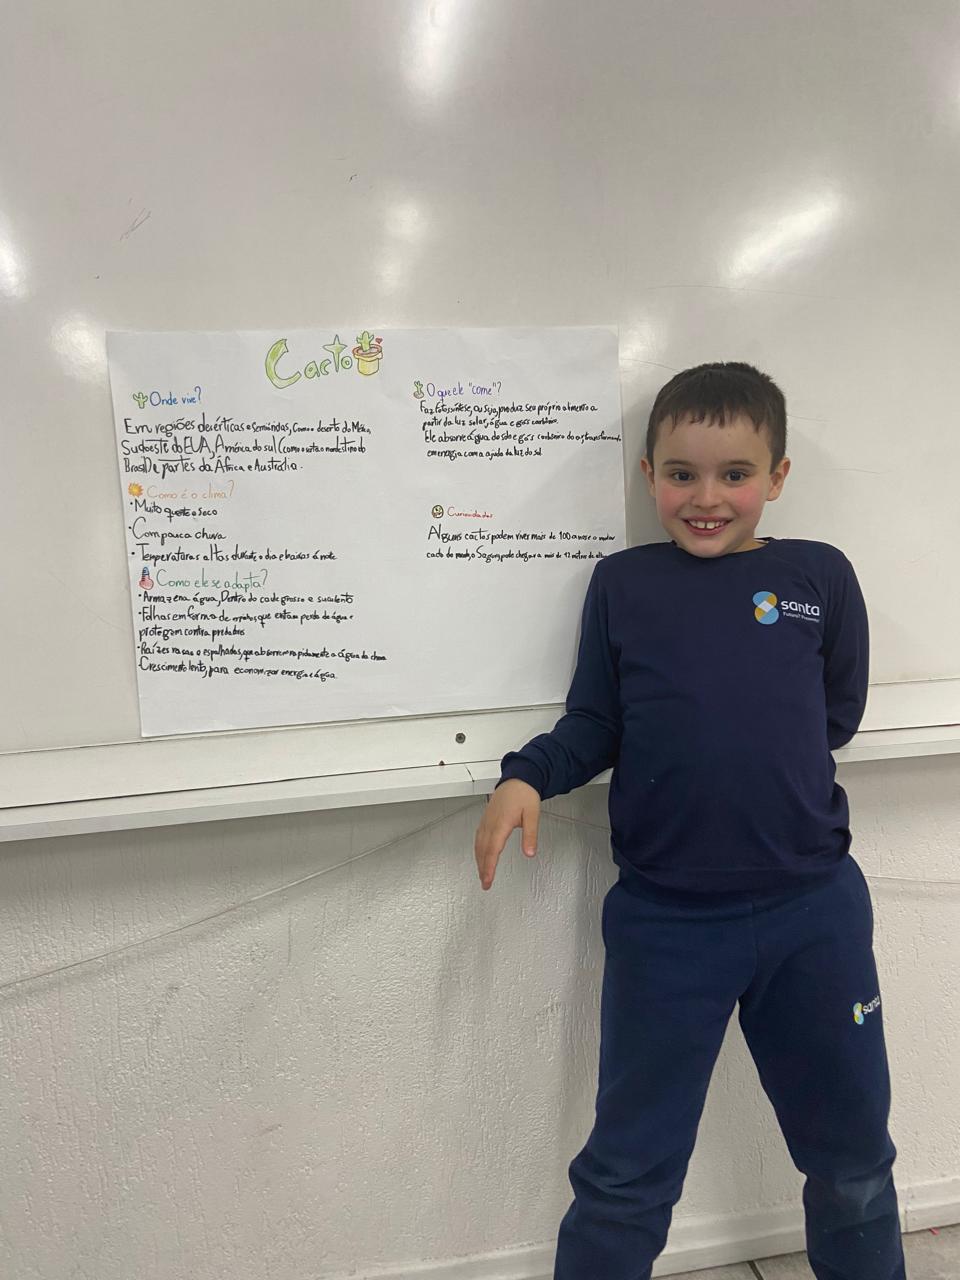 Cacto
Onde vive?
Em regiões desérticas e semiáridas, como o deserto do México,
Sudoeste do EUA, América do sul (como o sertão nordestino do
Brasil) e partes da África e Austrália.
Como é o clima?
•Muito quente e seco
•Com pouca chuva
•Temperaturas altas durante o dia e baixas à noite
Como ele se adapta?
•Armazena água, Dentro do caule grosso e suculento
•Folhas em forma de espinhos, que evitam perda de água e
protegem contra predadores
•Raízes rasas e espalhadas, que absorvem rapidamente a água da chuva
•Crescimento lento, para economizar energia e água.
O que ele "come"?
Faz fotossíntese, ou seja, produz seu próprio alimento a
partir da luz solar, água e gás carbônico.
Ele absorve água do solo e gás carbônico do ar, transformando
em energia com a ajuda da luz do sol.
Curiosidades
Alguns cactos podem viver mais de 100 anos e o maior
cacto do mundo, o Saguaro, pode chegar a mais de 12 metros de altura
santa
Futuro? Presente!
santa